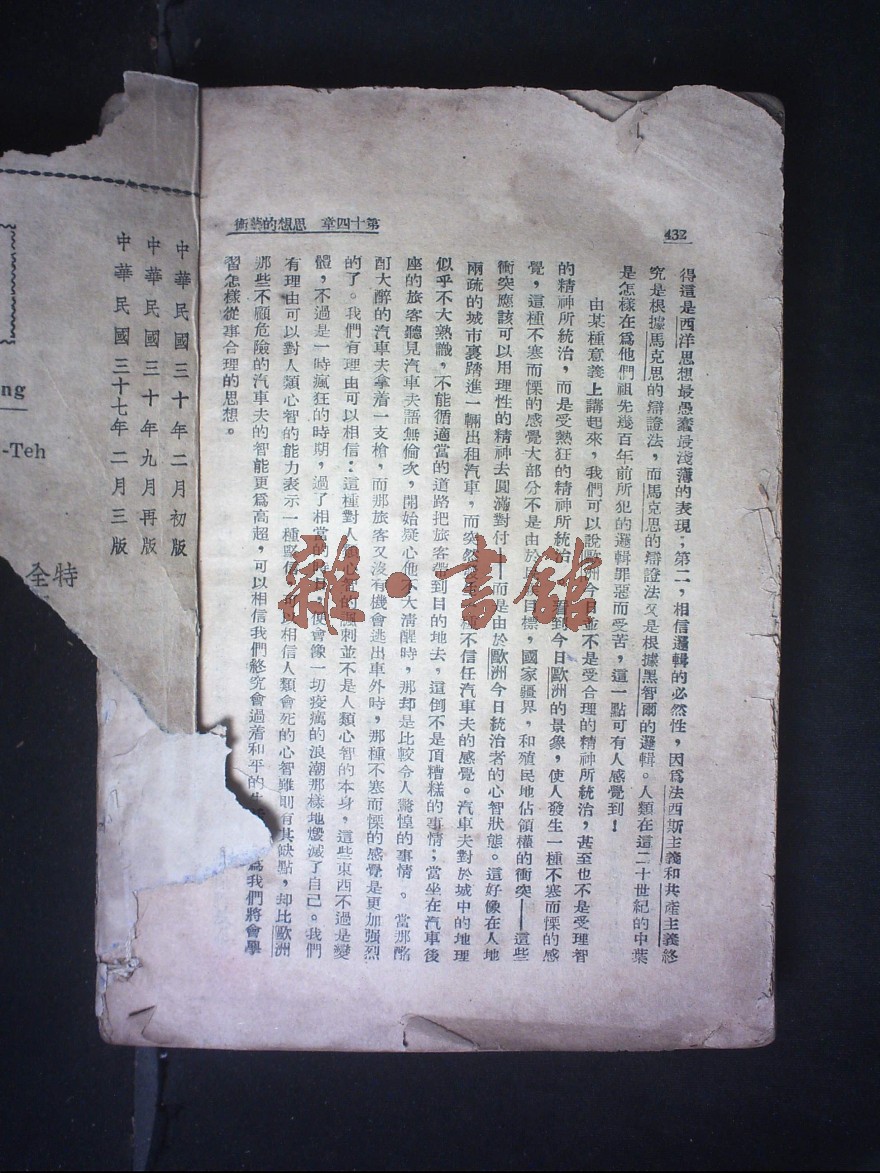 432
第十四章　思想的藝術
得這是西洋思想最愚蠢最淺薄的表現；第二，相信邏輯的必然性，因爲法西斯主義和共產主義終
究是根據馬克思的辯證法，而馬克思的辯證法又是根據黑智爾的邏輯。人類在這二十世紀的中葉
是怎樣在爲他們祖先幾百年前所犯的邏輯罪惡而受苦，這一點可有人感覺到！
由某種意義上講起來，我們可以說歐洲今日並不是受合理的精神所統治，甚至也不是受理智
的精神所統治，而是受熱狂的精神所統治 看到今日歐洲的景象，使人發生一種不寒而慄的感
覺，這種不寒而慄的感覺大部分不是由於 目標，國家疆界，和殖民地佔領權的衝突——這些
衝突應該可以用理性的精神去圓滿對付——而是由於歐洲今日統治者的心智狀態。這好像在人地
兩疏的城市裏踏進一輛出租汽車，而突然 不信任汽車夫的感覺。汽車夫對於城中的地理
似乎不大熟識，不能循適當的道路把旅客帶到目的地去，這倒不是頂糟糕的事情；當坐在汽車後
座的旅客聽見汽車夫語無倫次，開始疑心他不大清醒時，那却是比較令人驚惶的事情。當那酩
酊大醉的汽車夫拿着一支槍，而那旅客又沒有機會逃出車外時，那種不寒而慄的感覺是更加强烈
的了。我們有理由可以相信：這種對人類心智的諷刺並不是人類心智的本身，這些東西不過是變
體，不過是一時瘋狂的時期，過了相當的 便會像一切疫癘的浪潮那樣地燬滅了自己。我們
有理由可以對人類心智的能力表示一種堅信 可以相信人類會死的心智雖則有其缺點，却比歐洲
那些不顧危險的汽車夫的智能更爲高超，可以相信我們終究會過着和平的 爲我們將會學
習怎樣從事合理的思想。
中華民國三十年二月初版
中華民國三十年九月再版
中華民國三十七年二月三版
ng
-Teh
全特
雜·書館